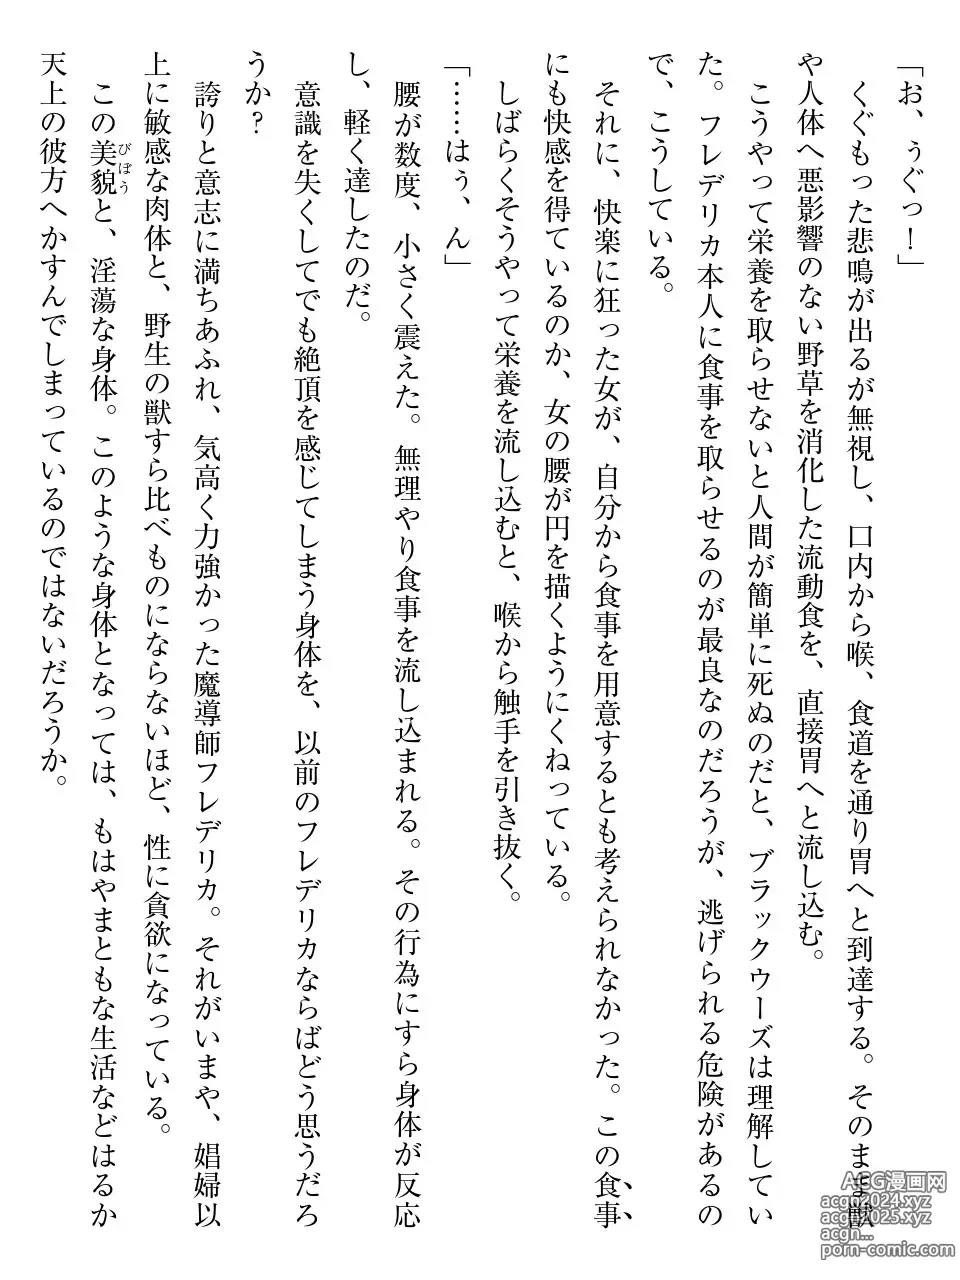 「お、ぅぐっ！」
くぐもった悲鳴が出るが無視し、口内から喉、食道を通り胃へと到達する。そのまま獣
や人体へ悪影響のない野草を消化した流動食を、直接胃へと流し込む。
こうやって栄養を取らせないと人間が簡単に死ぬのだと、ブラックウーズは理解してい
た。フレデリカ本人に食事を取らせるのが最良なのだろうが、逃げられる危険があるの
で、こうしている。
それに、快楽に狂った女が、自分から食事を用意するとも考えられなかった。この食事
にも快感を得ているのか、女の腰が円を描くようにくねっている。
しばらくそうやって栄養を流し込むと、喉から触手を引き抜く。
「……はぅ、ん」
腰が数度、小さく震えた。無理やり食事を流し込まれる。その行為にすら身体が反応
し、軽く達したのだ。
意識を失くしてでも絶頂を感じてしまう身体を、以前のフレデリカならばどう思うだろ
うか？
誇りと意志に満ちあふれ、気高く力強かった魔導師フレデリカ。それがいまや、娼婦以
上に敏感な肉体と、野生の獣すら比べものにならないほど、性に貪欲になっている。
この美貌びぼうと、淫蕩な身体。このような身体となっては、もはやまともな生活などはるか
天上の彼方へかすんでしまっているのではないだろうか。
ACG漫画网
acgn2024.xyz
acgn2025.xyz
acgn...
porn-comic.com